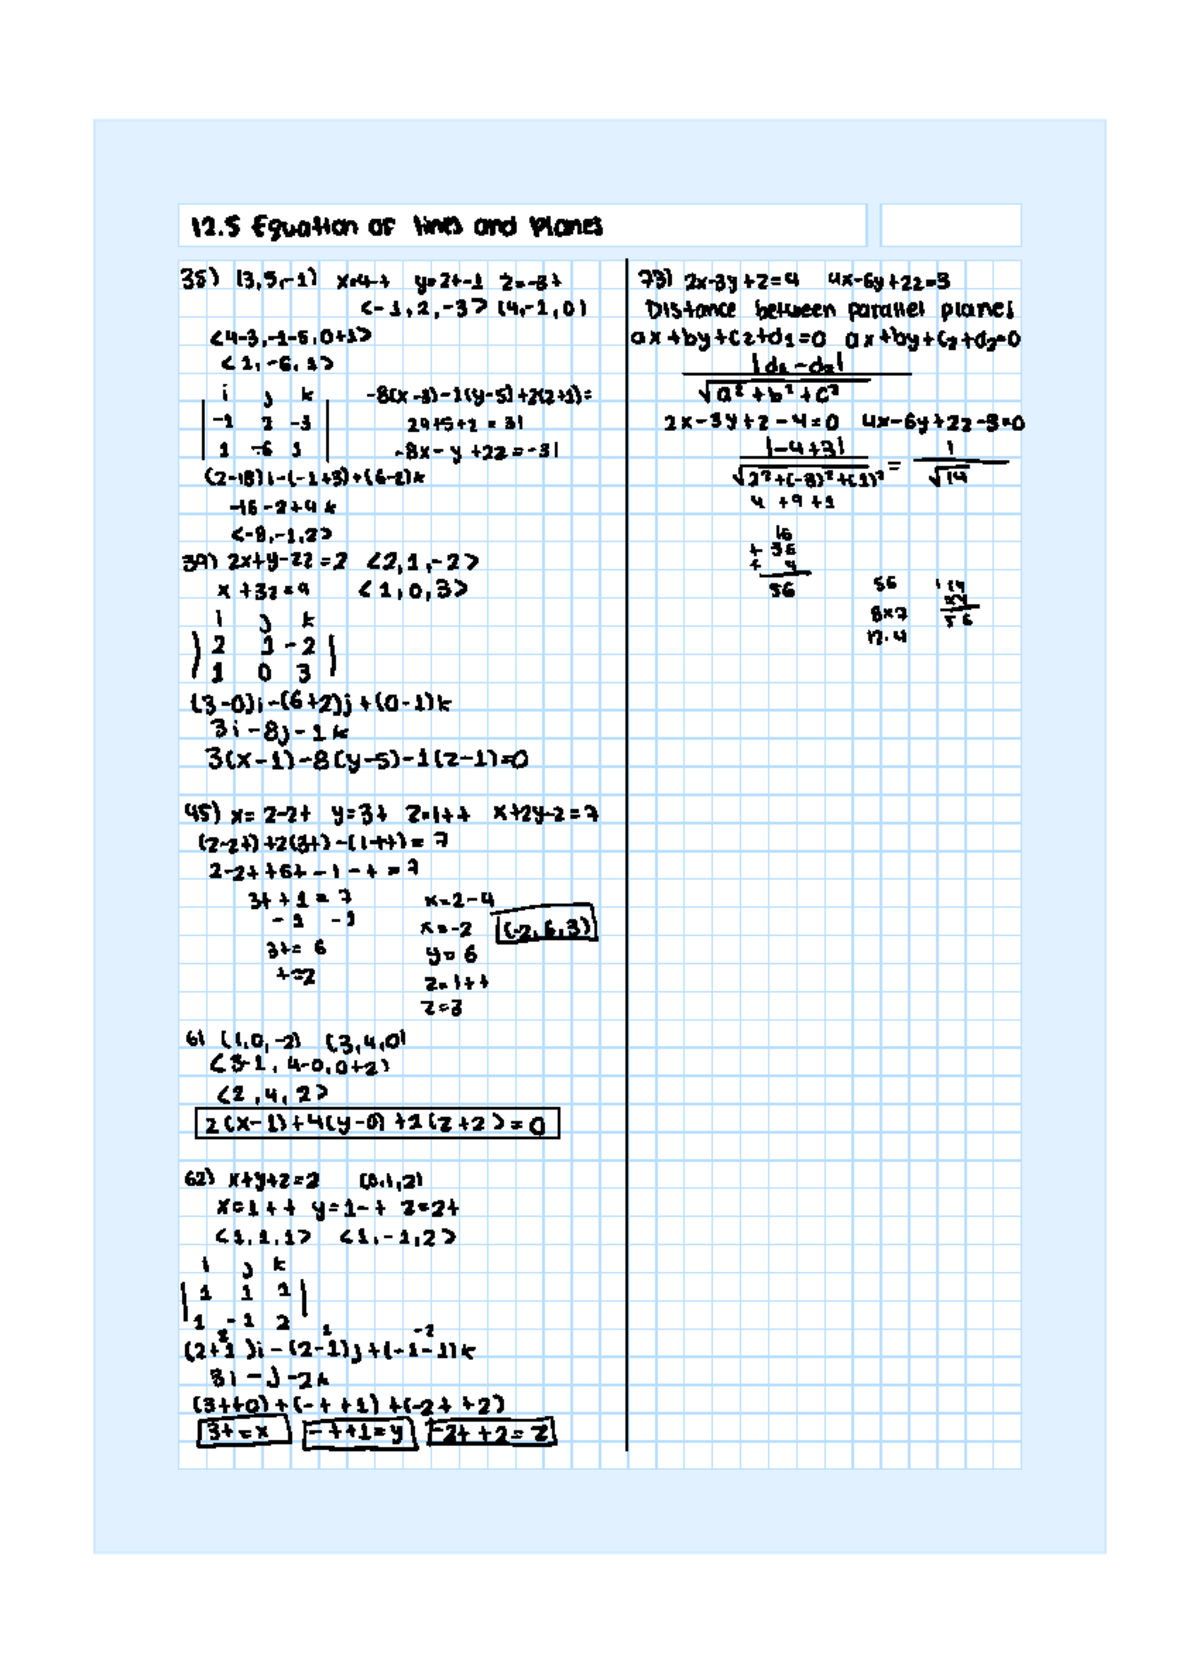 12.5 Equation of lines and Planes
35) (3,5,-1) x=4-t y=2t-1 z=-3t
<-1,2,-3> (4,-1,0)
<4-3,-1-5,0+1>
<1,-6,1>
i j k
-1 2 -3
1 -6 1
-8(x-3)-1(y-5)+2(z+1)=
24+5+2=31
-8x-y+2z=-31
(2-18)i-(-1+3)+(6-2)k
-16-2+4k
<-8,-1,2>
39) 2x+y-2z=2 <2,1,-2>
x+3z=4 <1,0,3>
i j k
2 1 -2
1 0 3
(3-0)i-(6+2)j+(0-1)k
3i-8j-1k
3(x-1)-8(y-5)-1(z-1)=0
45) x=2-2t y=3t z=1+t x+2y-z=7
(2-2t)+2(3t)-(1+t)=7
2-2t+6t-1-t=7
3t+1=7
-1 -1
3t=6
t=2
x=2-4
x=-2
y=6
z=1+t
z=3
(-2,6,3)
61 (1,0,-2) (3,4,0)
<3-1, 4-0,0+2)
<2,4,2>
2(x-1)+4(y-0)+2(z+2)=0
62) x+y+z=2 (0,1,2)
x=1+t y=1-t z=2t
<1,1,1> <1,-1,2>
i j k
1 1 1
1 -1 2
(2+1)i-(2-1)j+(-1-1)k
3i-j-2k
(3t+0)+(-t+1)+(-2t+2)
3t=x -t+1=y -2t+2=z
73) 2x-3y+z=4 4x-6y+2z=3
Distance between parallel planes
ax+by+cz+d1=0 ax+by+cz+d2=0
|d1-d2|
√a²+b²+c²
2x-3y+z-4=0 4x-6y+2z-3=0
|-4+3|
√2²+(-3)²+(1)² = 1/√14
4+9+1
16
+ 36
+ 4
56
56
8x7
14
x4
56